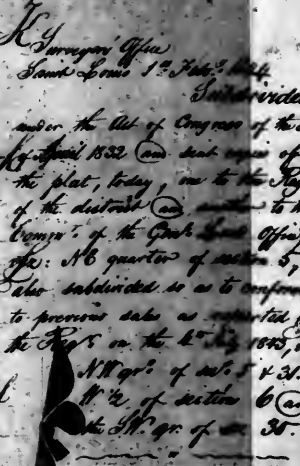 Surveyor's Office
Saint Louis 1st Feb.
Subdivided
under the Act of Congress of the
of April 1832 and sent copies of
the plat, today, one to the Reg
of the district and another to th
Comr. of the Genl. Land Office
viz: NE quarter of section 5,
also subdivided so as to conform
to previous sales as reported
the Regr. on the 4th July 1843,
NW qr. of sec. 5 & 31.
W ½ of section 6 an
the SW. qr. of sec 30.